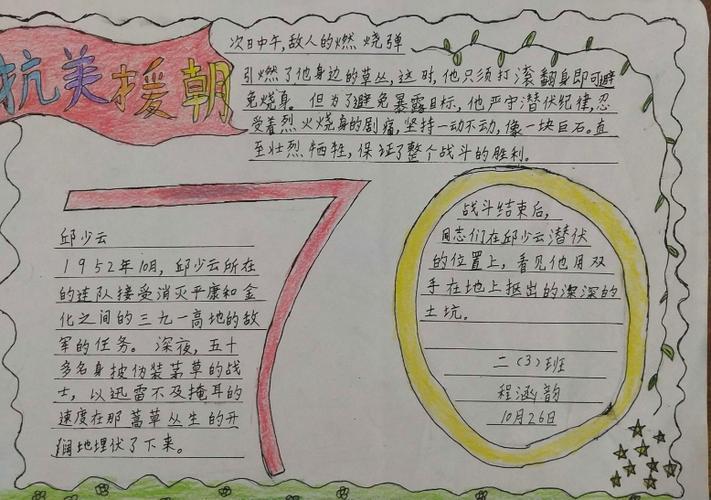 抗美援朝
次日中午,敌人的燃烧弹
引燃了他身边的草丛,这时,他只须打滚翻身即可避
免烧身。但为了避免暴露目标,他严守潜伏纪律,忍
受着烈火烧身的剧痛,坚持一动不动,像一块巨石。直
至壮烈牺牲,保证了整个战斗的胜利。
70
邱少云
1952年10月,邱少云所在
的连队接受消灭平康和金
化之间的三九一高地的敌
军的任务。深夜,五十
多名身披伪装茅草的战
士,以迅雷不及掩耳的
速度在那蒿草丛生的开
阔地埋伏了下来。
战斗结束后,
同志们在邱少云潜伏
的位置上,看见他用双
手在地上抠出的深深的
土坑。
二(3)班
程涵韵
10月26日